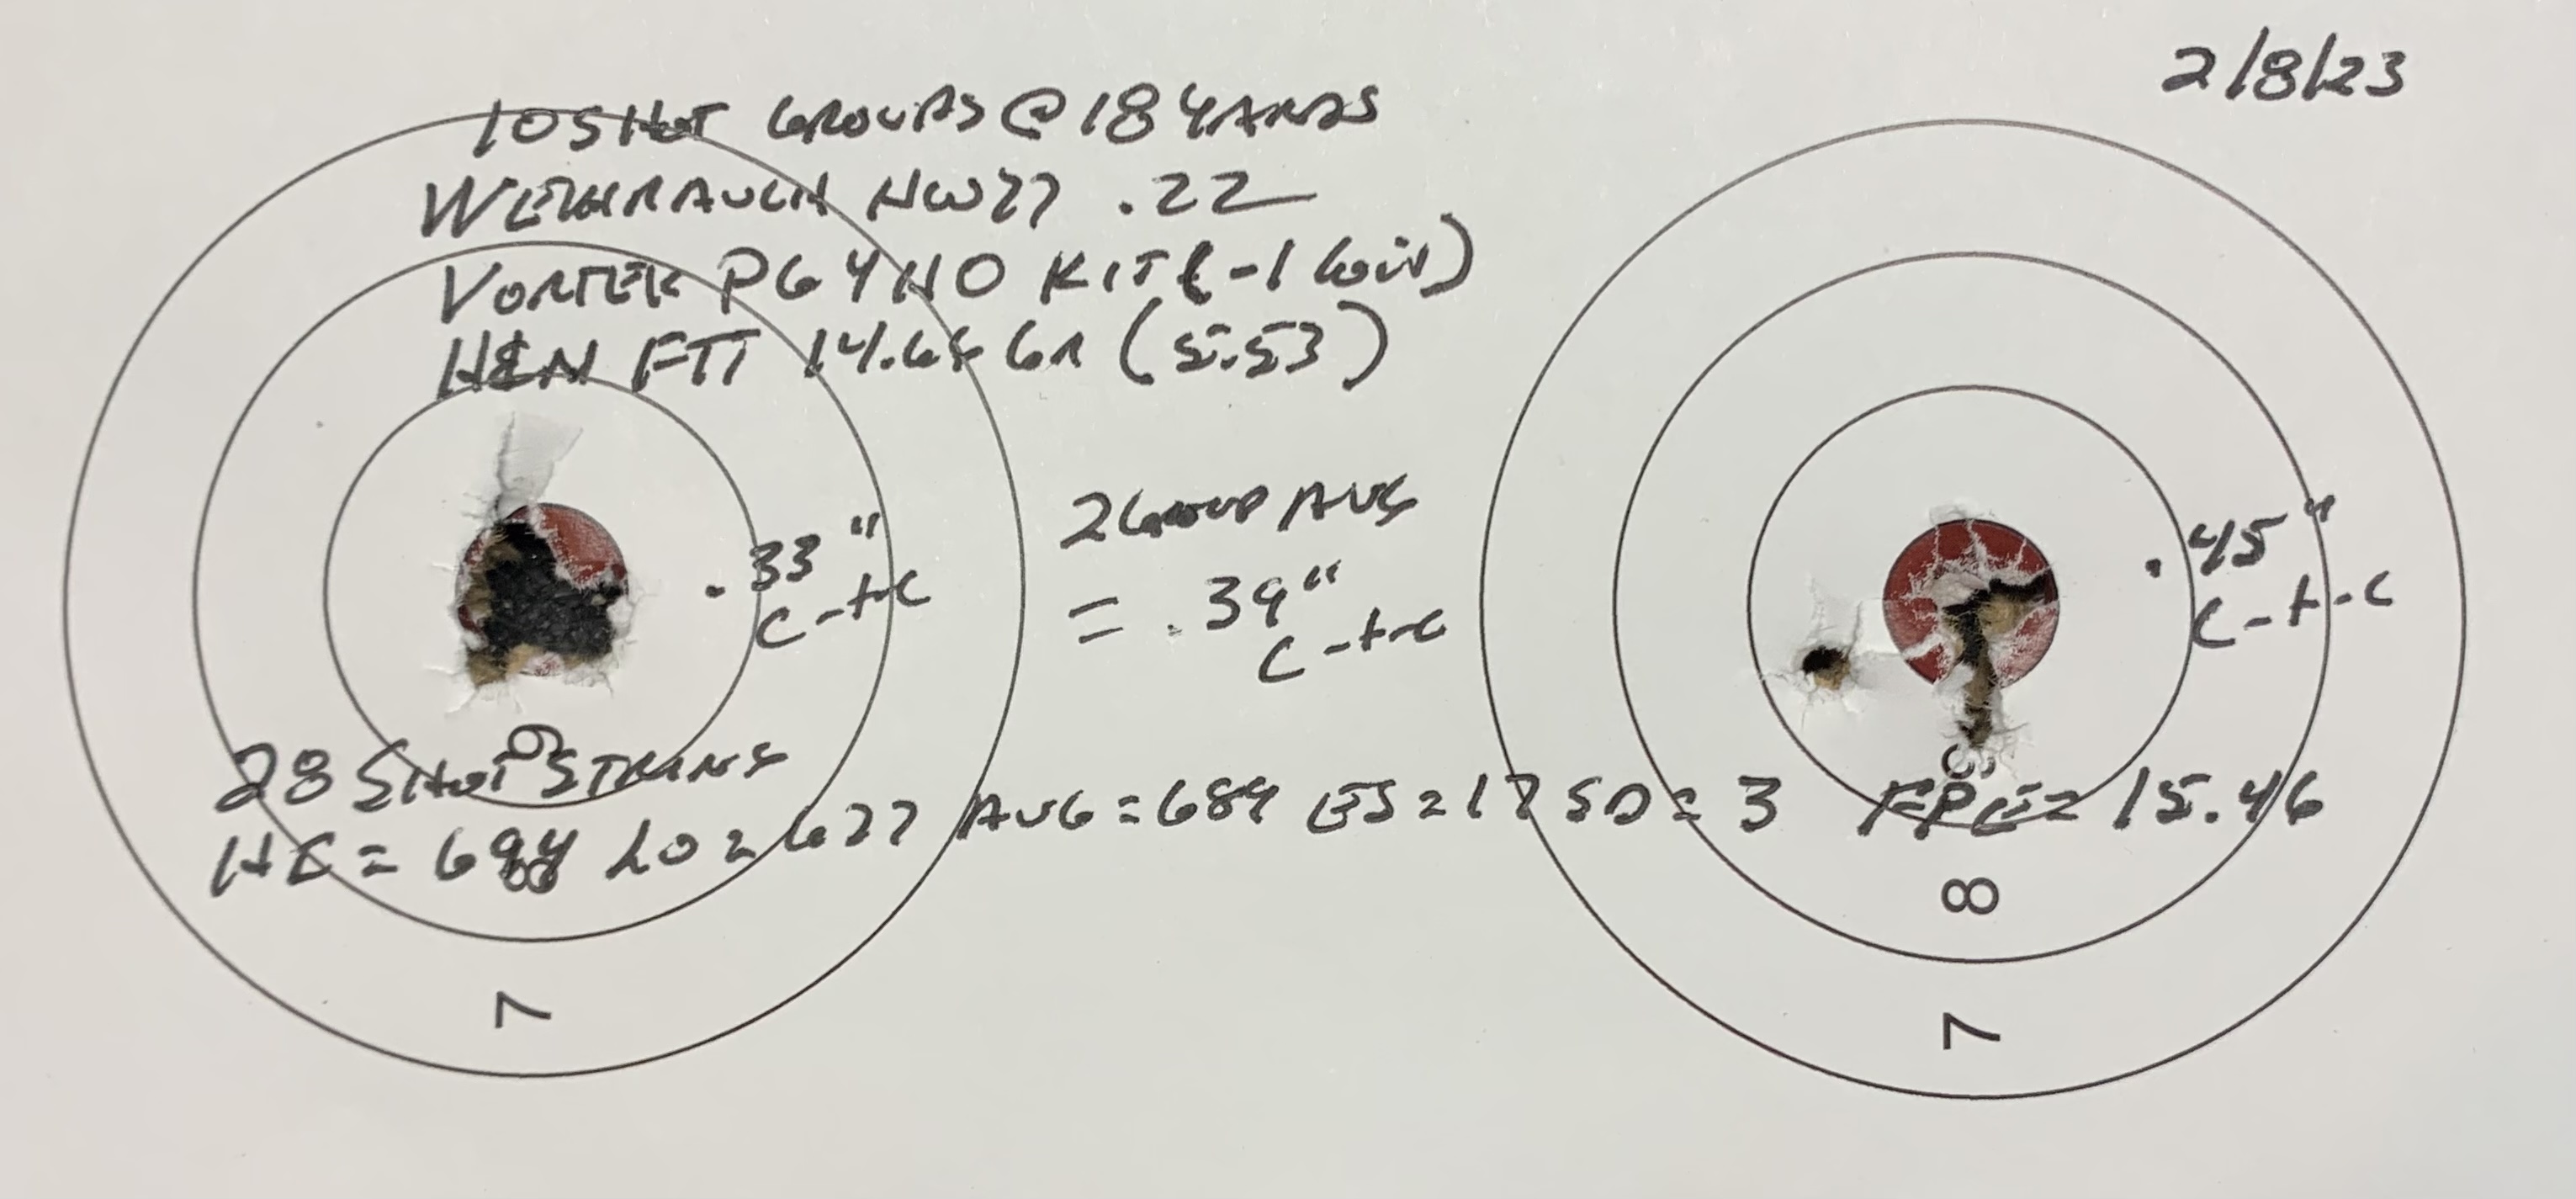 2/8/23
10 SHOT GROUPS @ 18 YARDS
WEIHRAUCH HW77 .22
VORTEK PG4 HO KIT (-1 COIL)
H&N FTT 14.66 GR (5.53)
.33" C-t-C
2 GROUP AVG
= .39" C-t-C
.45" C-t-C
9
28 SHOT STRING
HI = 694 LO = 677 AVG = 689 ES = 17 SD = 3 FPE = 15.46
8
8
7
7